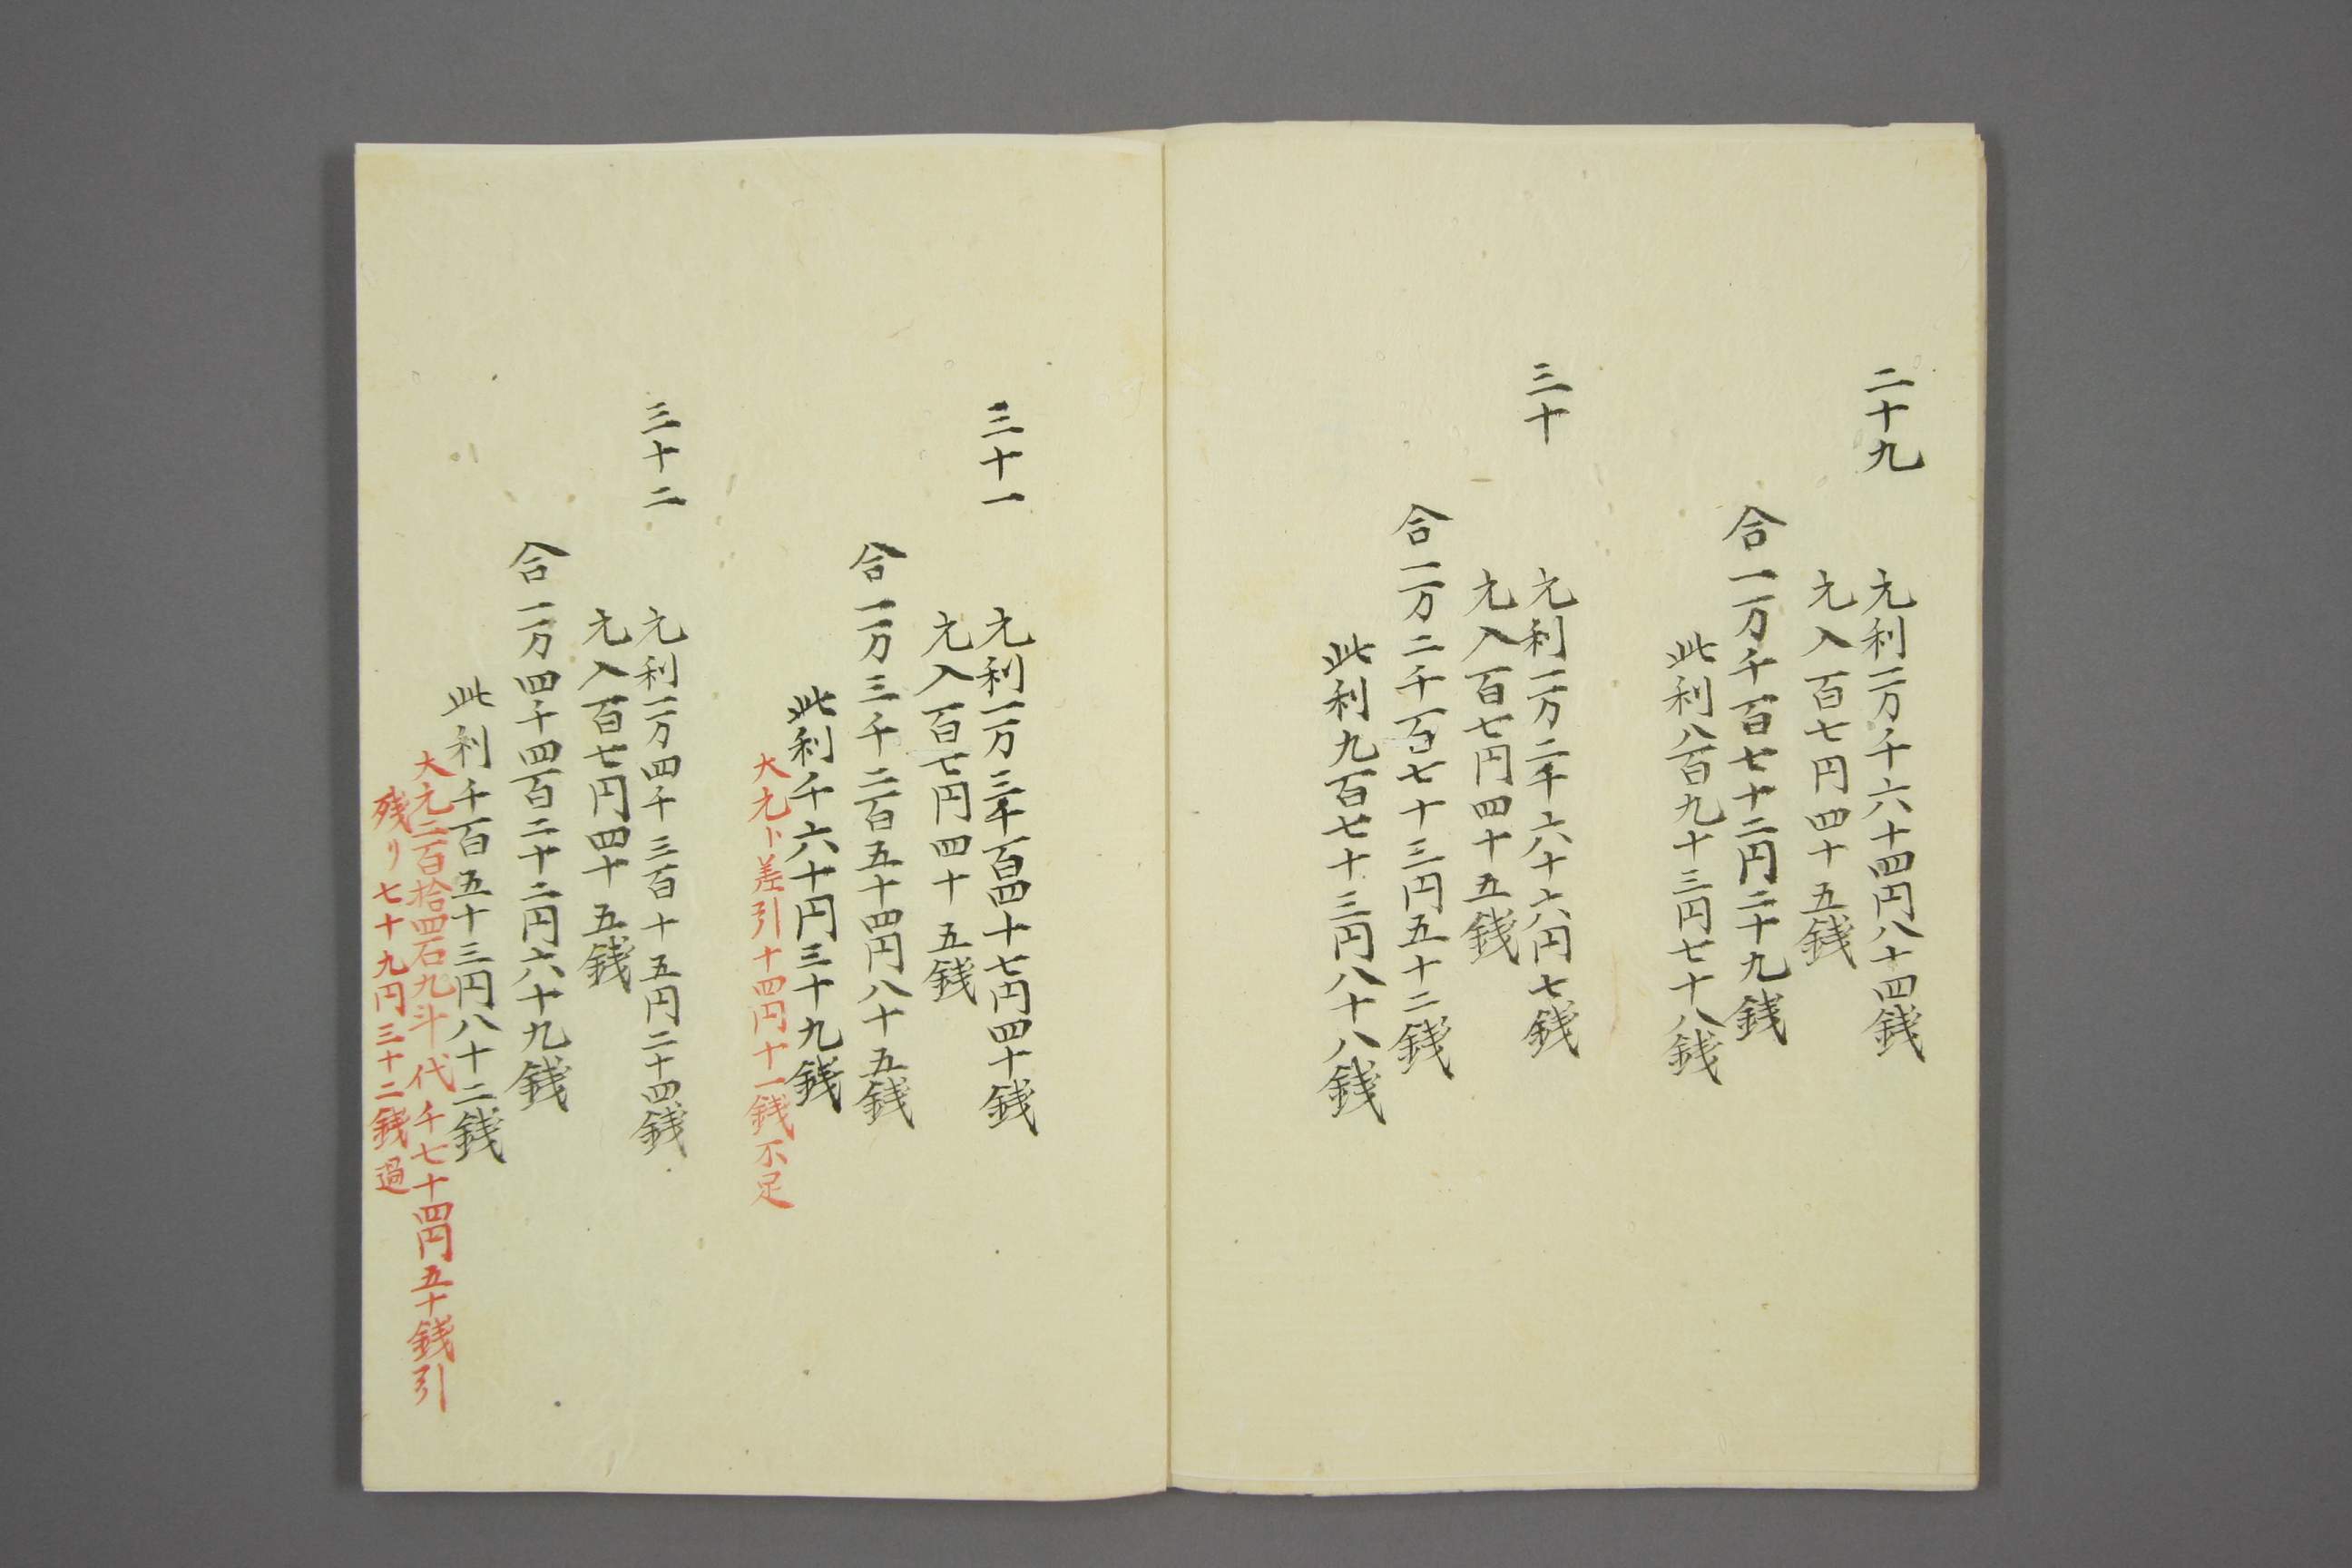 二十九
元利一万千六十四円八十四銭
元入百七円四十五銭
合一万千百七十二円二十九銭
此利八百九十三円七十八銭
三十
元利一万二千六十六円七銭
元入百七円四十五銭
合一万二千百七十三円五十二銭
此利九百七十三円八十八銭
三十一
元利一万三千百四十七円四十銭
元入百七円四十五銭
合一万三千二百五十四円八十五銭
此利千六十円三十九銭
大元ト差引十四円十一銭不足
三十二
元利一万四千三百十五円二十四銭
元入百七円四十五銭
合一万四千四百二十二円六十九銭
此利千百五十三円八十二銭
大元二百拾四石九斗代千七十四円五十銭引
残リ七十九円三十二銭過